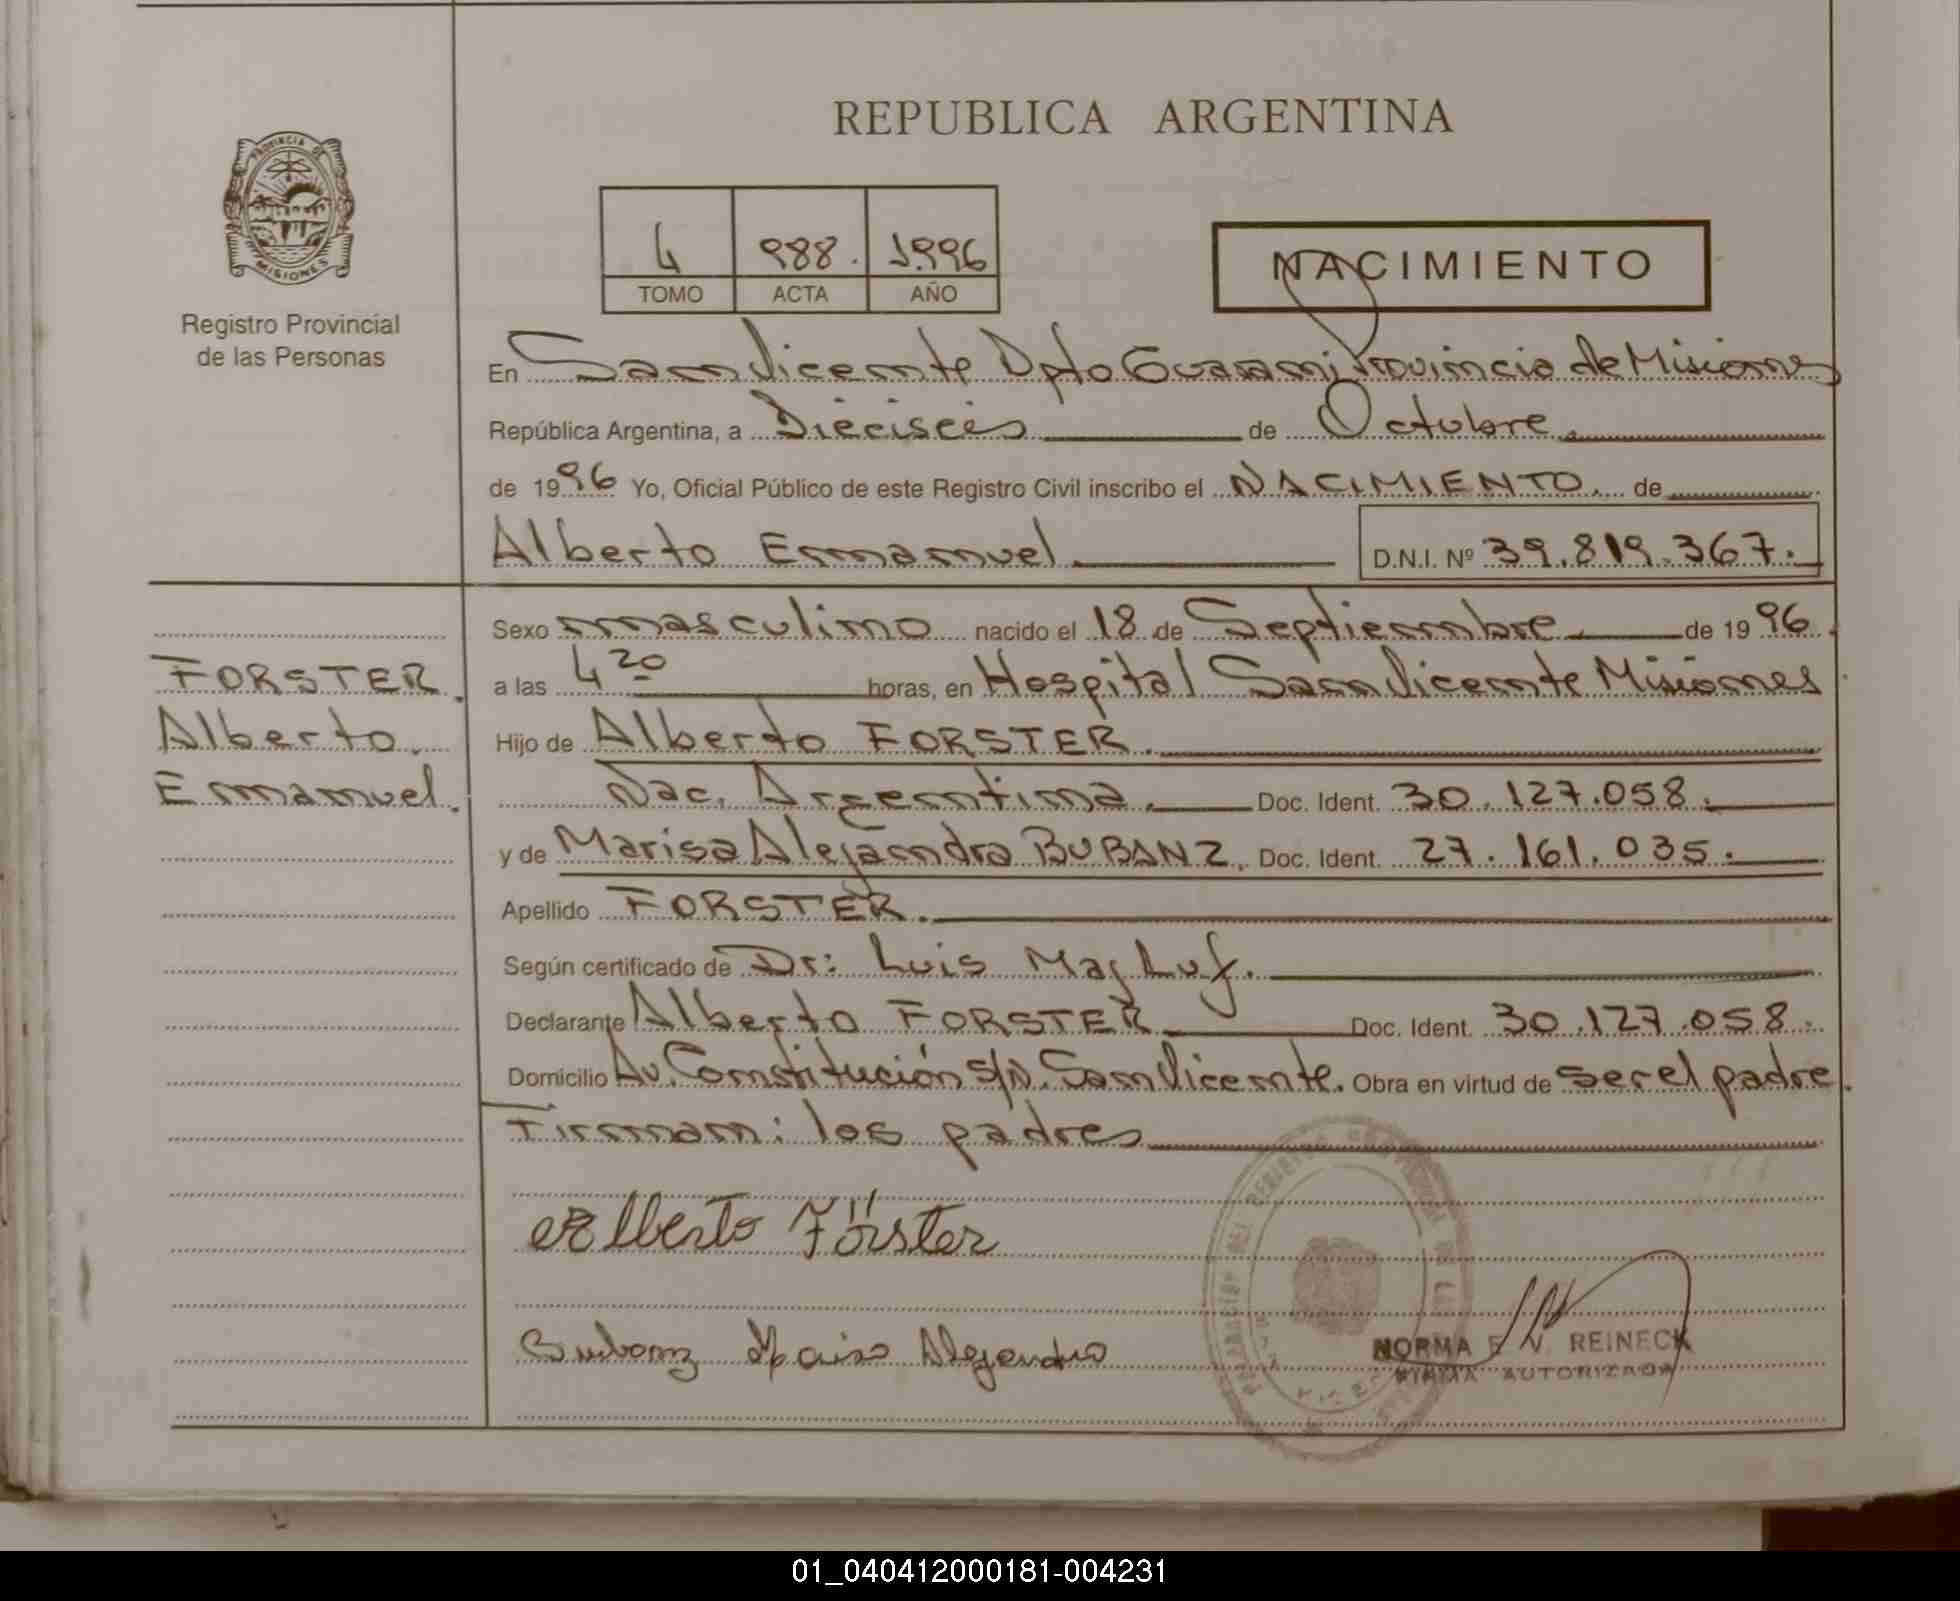 REPUBLICA ARGENTINA
PROVINCIA DE
MISIONES
Registro Provincial
de las Personas
4 988. 1996
TOMO ACTA AÑO
NACIMIENTO
En San Vicente Dpto Guarani Provincia de Misiones
República Argentina, a Dieciseis de Octubre.
de 1996 Yo, Oficial Público de este Registro Civil inscribo el NACIMIENTO. de
Alberto Emmanuel D.N.I. Nº 39.819.367.
FORSTER.
Alberto.
Emmanuel.
Sexo masculino nacido el 18 de Septiembre de 1996.
a las 4 20 horas, en Hospital San Vicente Misiones
Hijo de Alberto FORSTER.
Nac. Argentina. Doc. Ident. 30.127.058.
y de Marisa Alejandra BUBANZ. Doc. Ident. 27.161.035.
Apellido FORSTER.
Según certificado de Dr: Luis Majluf.
Declarante Alberto FORSTER Doc. Ident. 30.127.058.
Domicilio Av. Constitución S/N. San Vicente. Obra en virtud de ser el padre.
Firman: los padres
Alberto Förster
Bubanz Marisa Alejandra
NORMA E. N. REINECK
FIRMA AUTORIZADA
01_040412000181-004231